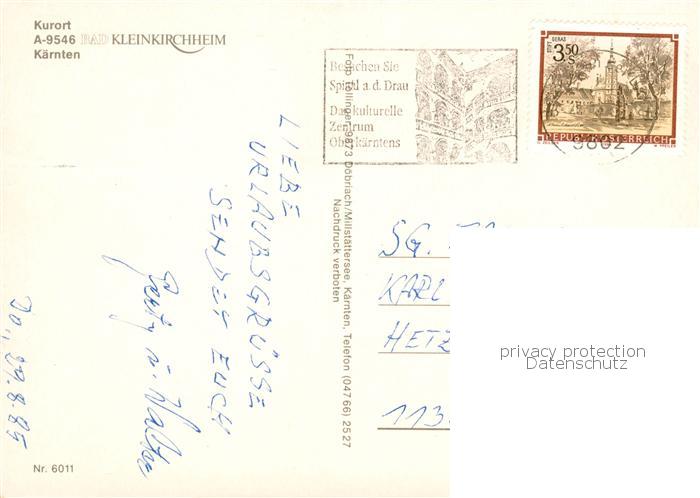 Kurort
A-9546 BAD KLEINKIRCHHEIM
Kärnten
Besuchen Sie
Spittal a.d. Drau
Das kulturelle
Zentrum
Oberkärntens
STIFT GERAS
3.50
S
REPUBLIK ÖSTERREICH
9802
LIEBE
URLAUBSGRÜSSE
SENDEN EUCH
u. Walter
Do., 29.8.85
Foto Tollinger, 9873 Döbriach/Millstättersee, Kärnten, Telefon (04766) 2527
Nachdruck verboten
SG.
KARL
HETZ
113
privacy protection
Datenschutz
Nr. 6011